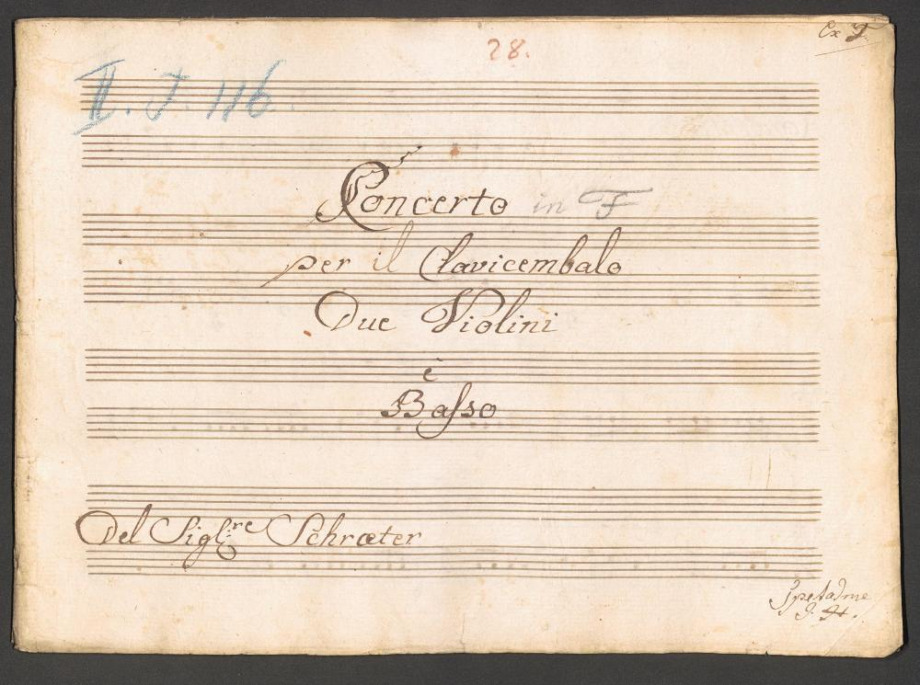 Ex F
28.
II. J. 116.
Concerto in F
per il Clavicembalo
Due Violini
è
Baſso
Del Sigl:re Schrœter
Spetadme
J. H.